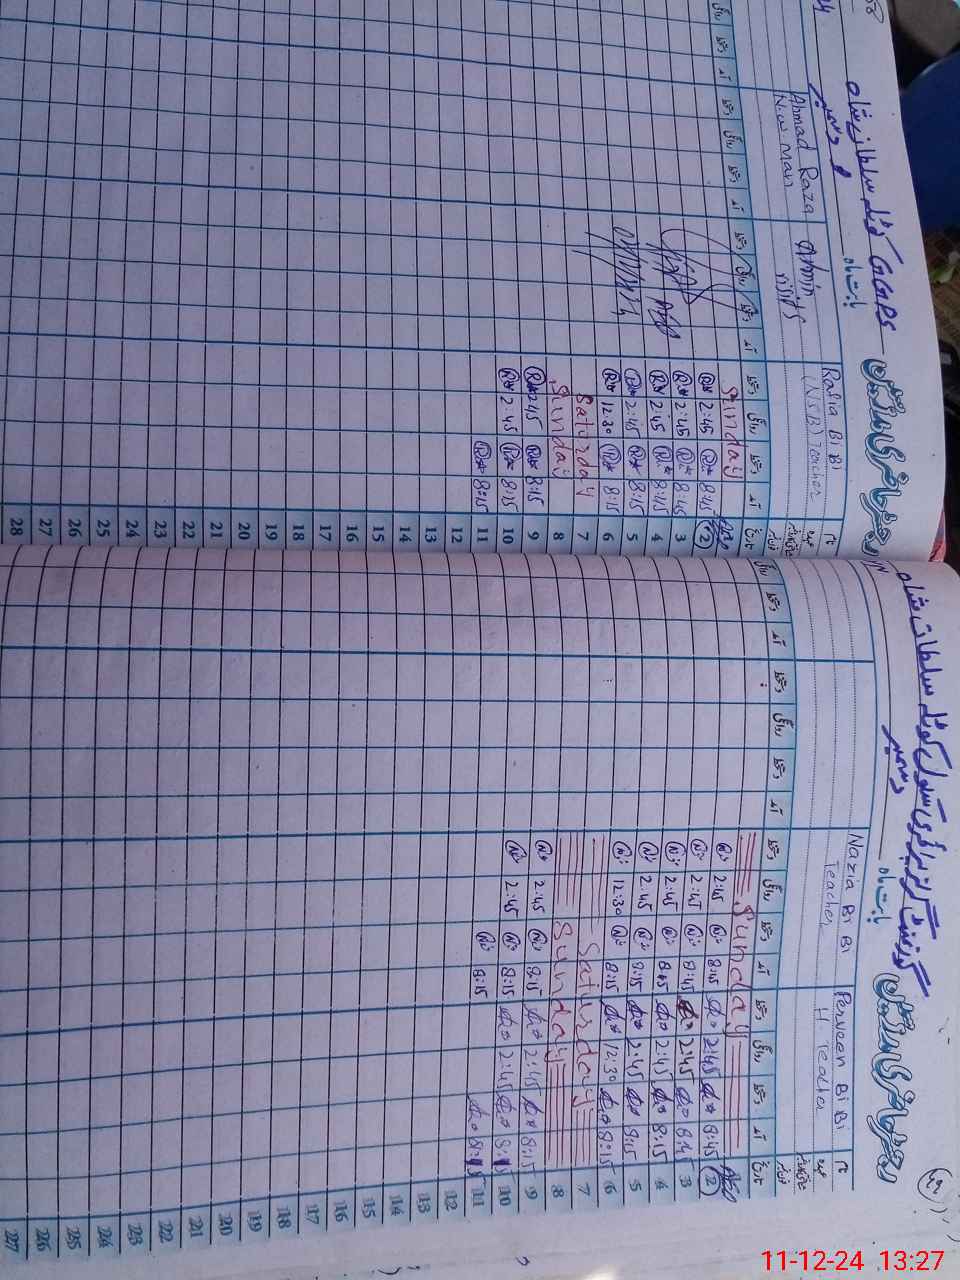 رجسٹر حاضری مدرسین
GGPS کوٹلہ سلطان شاہ
بابت ماہ دسمبر
نام
عہدہ
تاریخ
آمد دستخط روانگی دستخط
Rafia Bi Bi
(NSB) Teacher
Admin
Ahmad Raza
N.W. Man
Sunday
2 8:45 2:45
3 8:45 2:45
4 8:45 2:45
5 8:45 2:45
6 8:15 12:30
7 Saturday
8 Sunday
9 8:15 2:45
10 8:15 2:45
11 8:15
12
13
14
15
16
17
18
19
20
21
22
23
24
25
26
27
28
رجسٹر حاضری مدرسین
گورنمنٹ گرلز پرائمری سکول کوٹلہ سلطان شاہ
بابت ماہ دسمبر
49
نام
عہدہ
تاریخ
آمد دستخط روانگی دستخط
Perveen Bi Bi
H Teacher
Nazia Bi Bi
Teacher
Sunday
2 8:45 2:45 8:45 2:45
3 8:45 2:45 8:45 2:45
4 8:15 2:45 8:45 2:45
5 8:15 2:45 8:15 2:45
6 8:15 12:30 8:15 12:30
7 Saturday
8 Sunday
9 8:15 2:45 8:15 2:45
10 8:15 2:45 8:15 2:45
11 8:15 8:15
12
13
14
15
16
17
18
19
20
21
22
23
24
25
26
27
11-12-24 13:27